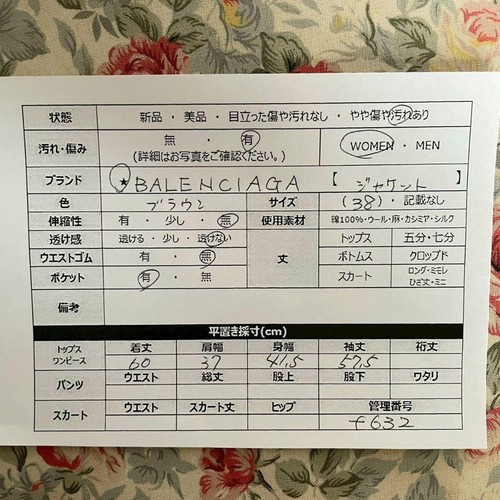 状態 新品 ・ 美品 ・ 目立った傷や汚れなし ・ やや傷や汚れあり
汚れ・傷み 無 ・ 有 WOMEN ・ MEN
(詳細はお写真をご確認ください。)
ブランド ★BALENCIAGA 【 ジャケット 】
色 ブラウン サイズ (38)・記載なし
伸縮性 有 ・ 少し ・ 無 使用素材 綿100%・ウール・麻・カシミヤ・シルク
透け感 透ける ・ 少し ・ 透けない 丈 トップス 五分・七分
ウエストゴム 有 ・ 無 ボトムス クロップド
ポケット 有 ・ 無 スカート ロング・ミモレ
ひざ丈・ミニ
備考
平置き採寸(cm)
トップス
ワンピース 着丈 肩幅 身幅 袖丈 裄丈
60 37 41.5 57.5
パンツ ウエスト 総丈 股上 股下 ワタリ
スカート ウエスト スカート丈 ヒップ 管理番号
632